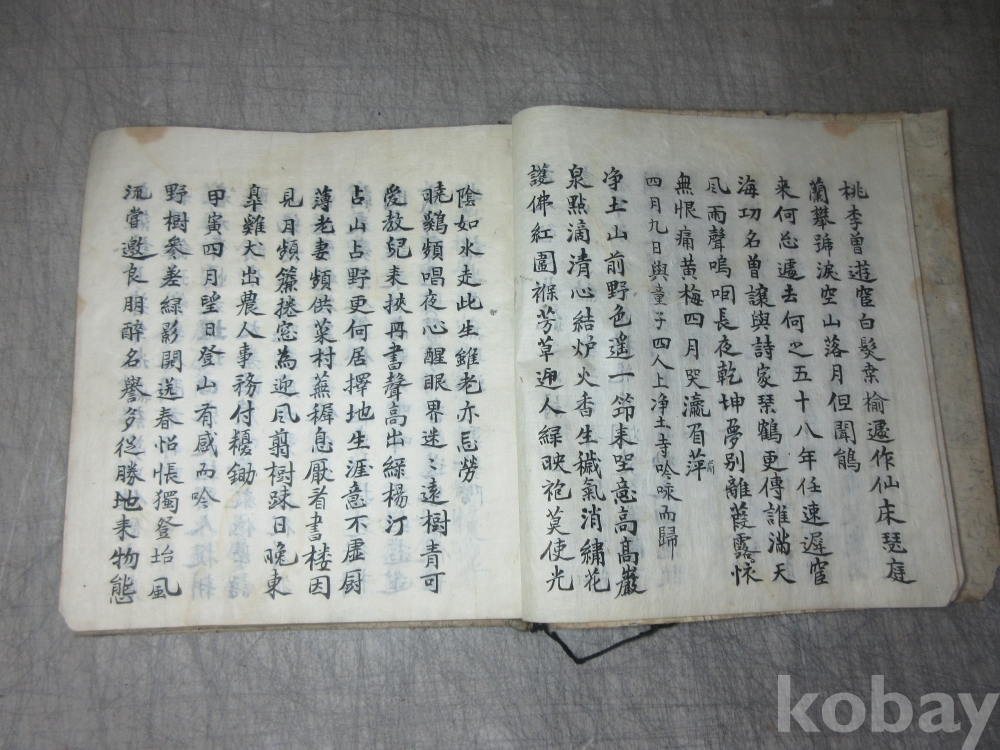 桃李曾遊窗白髮桑榆遽作仙床琴庭
蘭攀號淚空山落月但聞鵑
來何怱遽去何之五十八年任速遲窗
海功名曾讓與詩家琴鶴更傳誰滿天
風雨聲嗚咽長夜乾坤夢別離薤露怺
無恨痛黃梅四月哭瀛眉萍
四月九日與童子四人上净土寺吟咏而歸
净土山前野色遥一笻来坐意高高巖
泉點滴清心結炉火香生穢氣消繡花
護佛紅圍裸芳草迎人綠映袍莫使光
陰如水走此生雖老亦忘勞
曉鷄頻唱夜心醒眼界迷〻遠樹青可
愛敖兒来挾冊書聲高出綠楊汀
占山占野更何居擇地生涯意不虛厨
薄老妻頻供菜村蕪穉息厭看書楼因
見月頻簾捲窓為迎風剪樹踈日晚東
皋雞犬出農人事務付耰鋤
甲寅四月望日登山有感而吟
野樹參差綠影開送春怊悵獨登坮風
流當邀良朋醉名譽多從勝地来物態
kobay